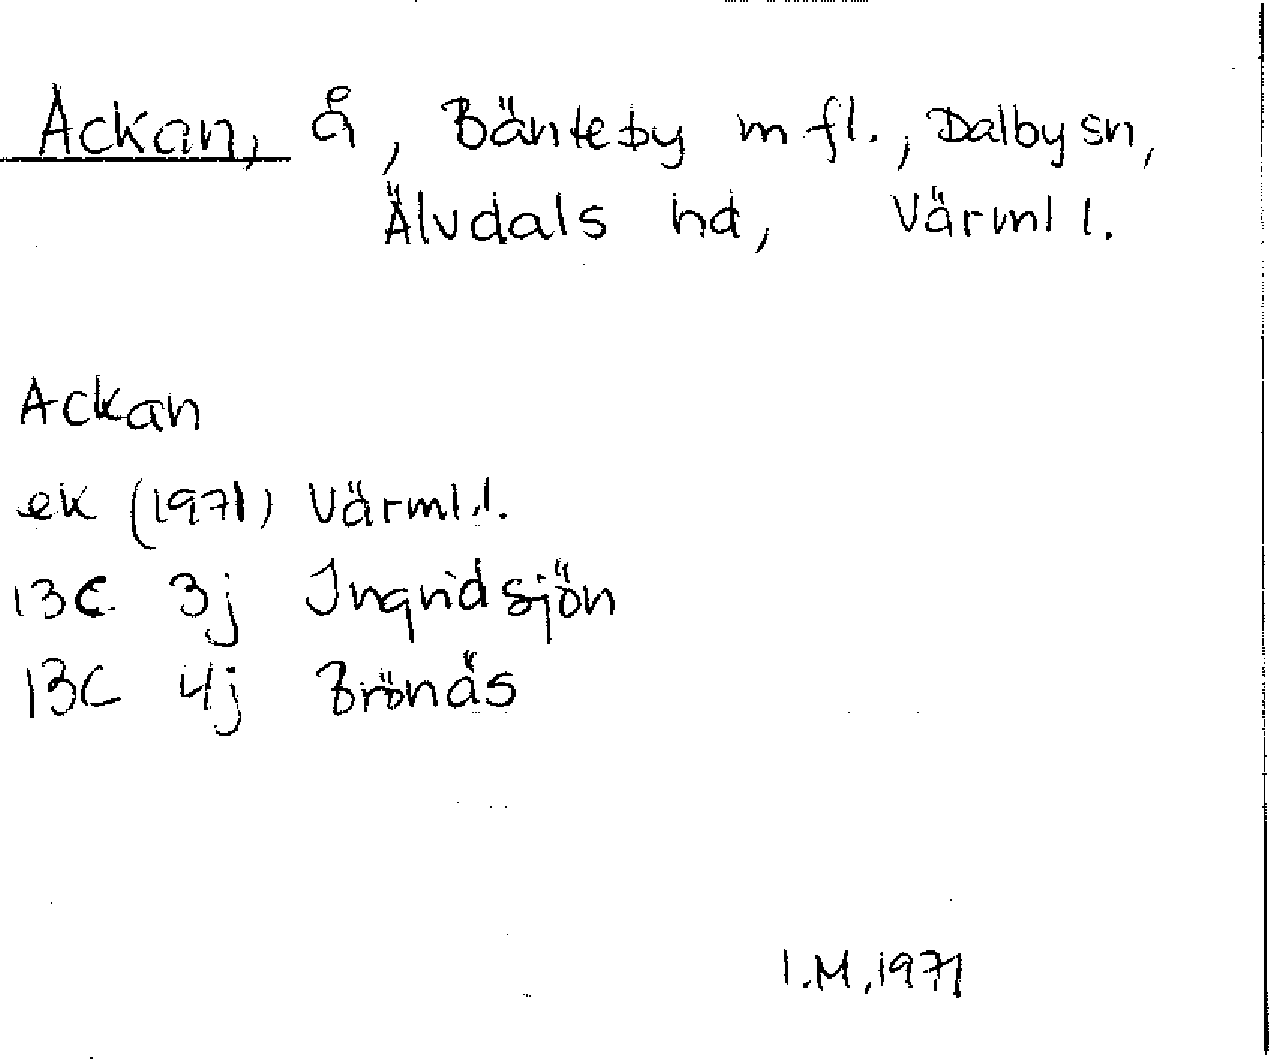 Ackan, å, Bänteby m fl., Dalby sn,
Älvdals hd, Värml l.
Ackan
ek (1971) Värml.l.
13C 3j Ingridsjön
13C 4j Brönäs
I.M, 1971